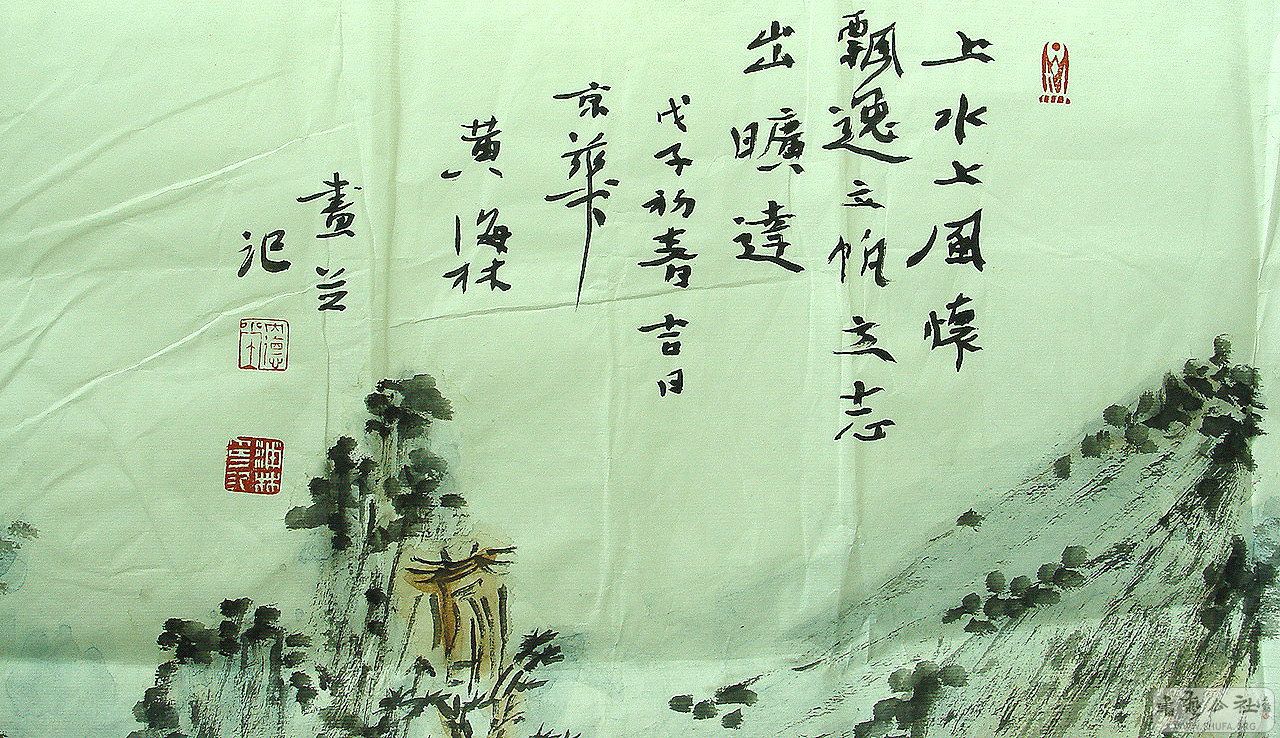 上水上懷
飄逸立立志
出曠達
戊子初春吉日
京華
黄海林
畫並
记
海林
公社
WWW.SHUFA.ORG